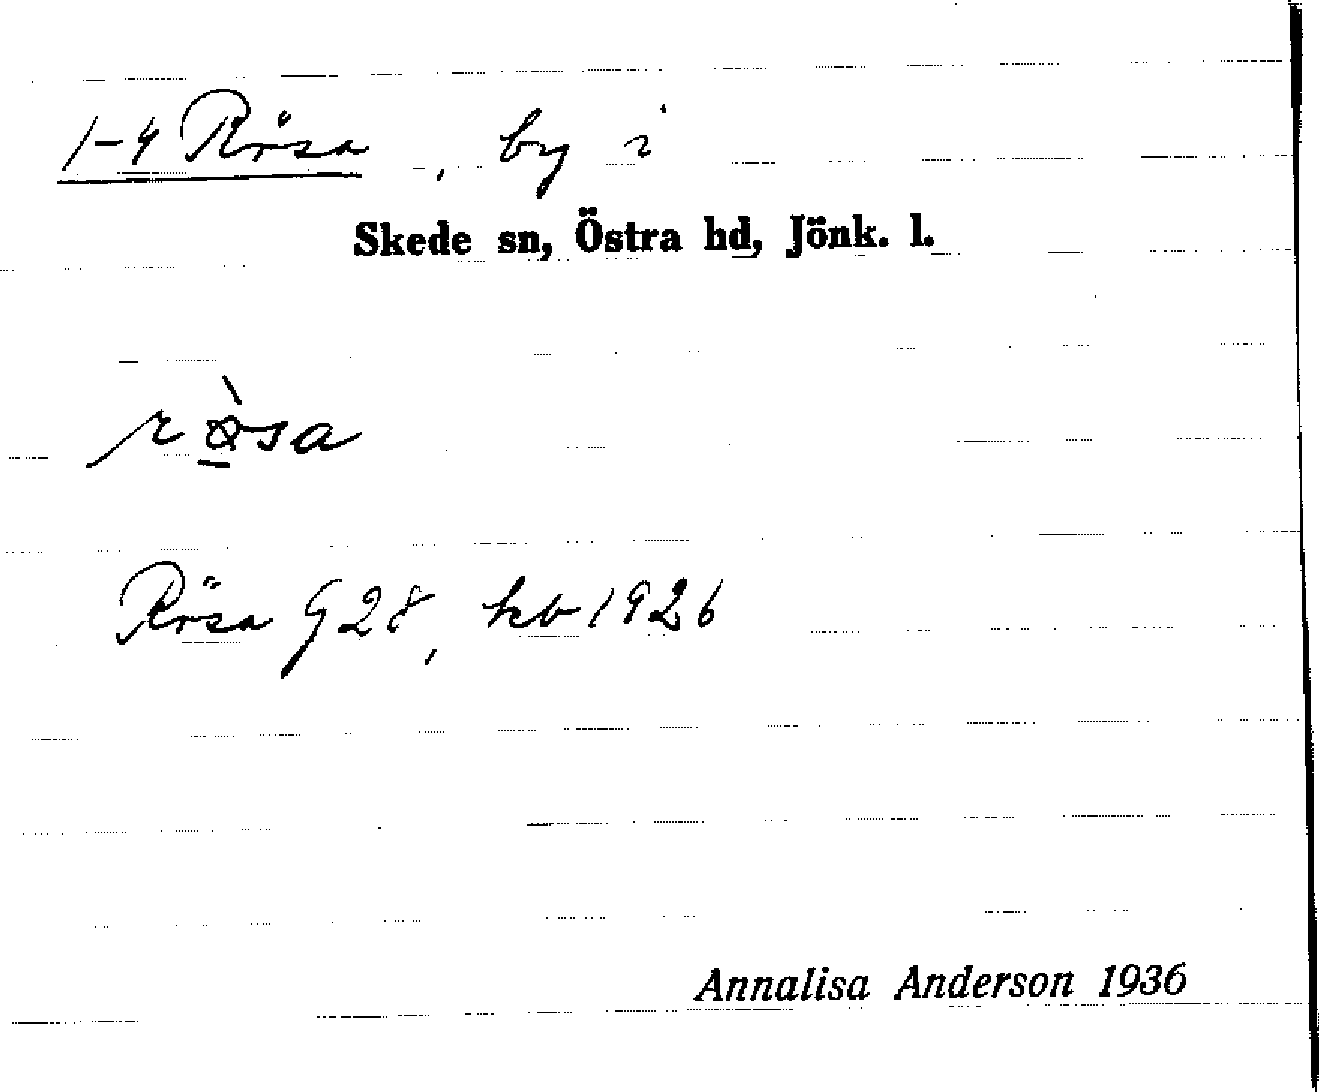 1-4 Rösa, by i
Skede sn, Östra hd, Jönk. l.
rø̀sa
Rösa G 28, kb 1926
Annalisa Anderson 1936